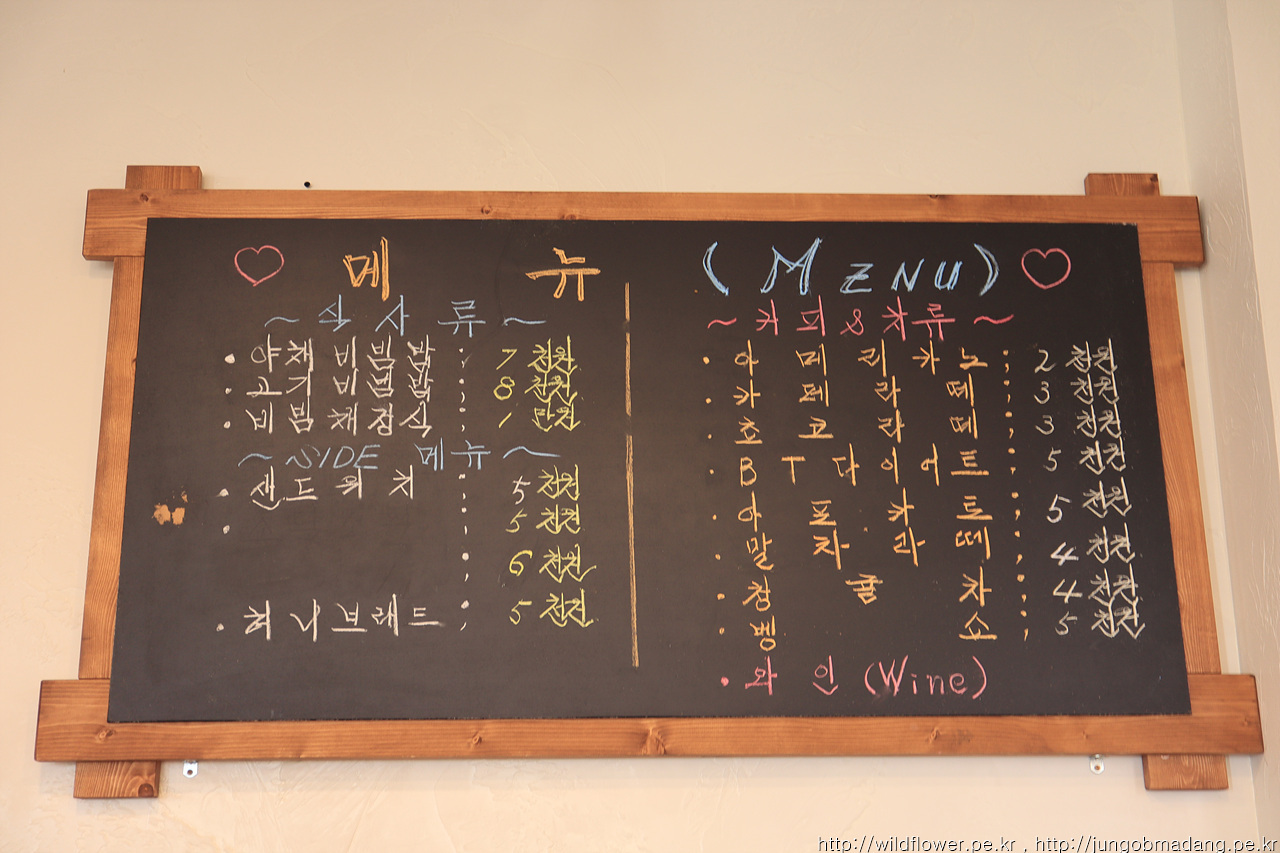 메 뉴 (MENU)
~식사류~
· 야채 비빔밥 : 7천원
· 고기 비빔밥 : 8천원
· 비빔채정식 : 1만원
~SIDE 메뉴~
· 샌드위치 : 5천원
· : 5천원
: 6천원
· 허니브래드 : 5천원
~커피&차류~
· 아메리카노 : 2천원
· 카페라떼 : 3천원
· 쵸코라떼 : 3천원
· BT다이어트 : 5천원
· 아포카토 : 5천원
· 말차라떼 : 4천원
· 창귤차 : 4천원
· 벵쇼 : 5천원
· 와인 (Wine)
http://wildflower.pe.kr , http://jungobmadang.pe.kr